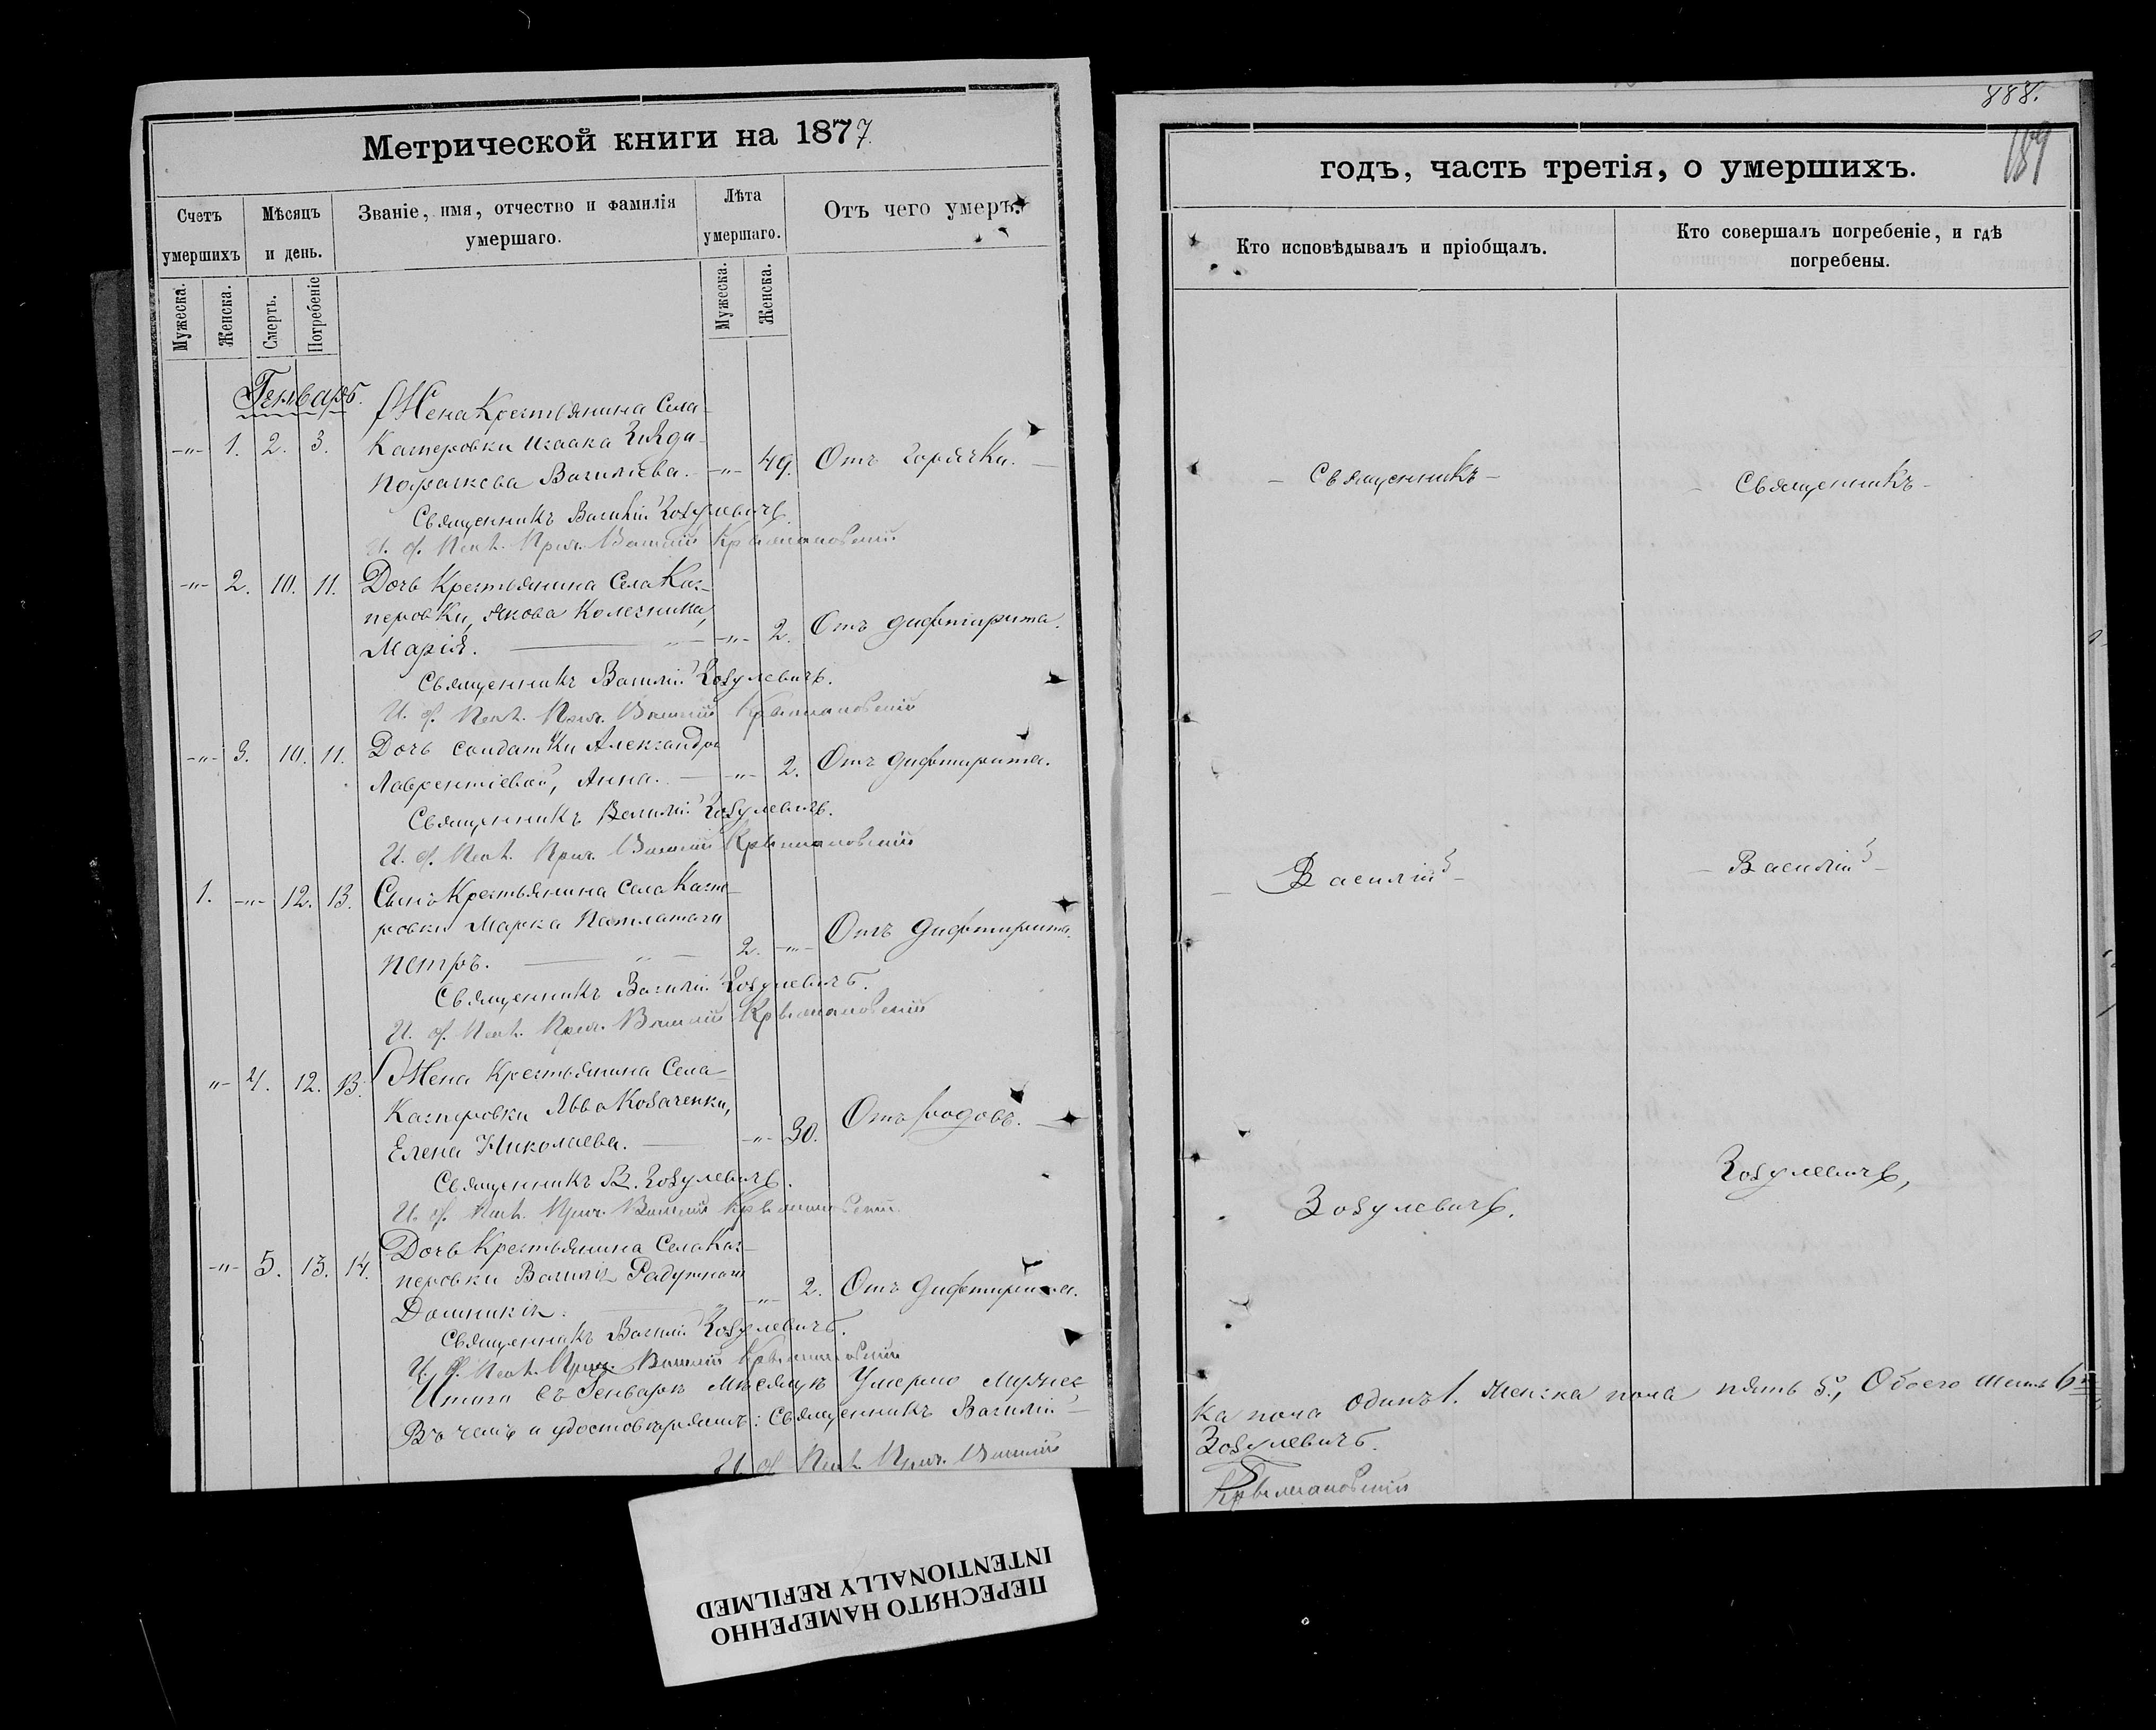 Метрической книги на 1877.
Счетъ умершихъ
Мѣсяцъ и день.
Званіе, имя, отчество и фамилія умершаго.
Лѣта умершаго.
Отъ чего умеръ.
Мужеска.
Женска.
Смерть.
Погребеніе
Мужеска.
Женска.
Генварь.
Жена Крестьянина Села
-"- 1. 2. 3. Касперовки Исаака
Параскева Васильева. -"- 49. Отъ горячки.
Священникъ Василій Зозулевичъ.
И. д. Псал. Прич. Василій Крыжановскій
-"- 2. 10. 11. Дочь Крестьянина Села Кас-
перовки, Якова Колесника,
Марія. -"- 2. Отъ дифтирита.
Священникъ Василій Зозулевичъ.
И. д. Псал. Прич. Василій Крыжановскій
-"- 3. 10. 11. Дочь солдатки Александры
Лаврентіевой, Анна. -"- 2. Отъ дифтирита.
Священникъ Василій Зозулевичъ.
И. д. Псал. Прич. Василій Крыжановскій
1. -"- 12. 13. Сынъ Крестьянина Села Каспе-
ровки Марка
Петръ. 2. -"- Отъ дифтирита.
Священникъ Василій Зозулевичъ.
И. д. Псал. Прич. Василій Крыжановскій
-"- 4. 12. 13. Жена Крестьянина Села
Касперовки Льва Козаченки,
Елена Николаева. -"- 30. Отъ родовъ.
Священникъ В. Зозулевичъ.
И. д. Псал. Прич. Василій Крыжановскій
-"- 5. 13. 14. Дочь Крестьянина Села Кас-
перовки Василія
Домникія. -"- 2. Отъ дифтирита.
Священникъ Василій Зозулевичъ.
И. д. Псал. Прич. Василій Крыжановскій
Итого въ Генварѣ мѣсяцѣ умерло мужес
Въ чемъ и удостовѣряемъ: Священникъ Василій
И. д. Псал. Прич. Василій
888.
189
годъ, часть третія, о умершихъ.
Кто исповѣдывалъ и пріобщалъ.
Кто совершалъ погребеніе, и гдѣ погребены.
- Священникъ -
- Священникъ -
- Василій -
- Василій -
Зозулевичъ.
Зозулевичъ,
ка пола одинъ 1. женска пола пять 5., Обоего шесть 6
Зозулевичъ.
Крыжановскій
ПЕРЕСНЯТО НАМЕРЕННО
INTENTIONALLY REFILMED